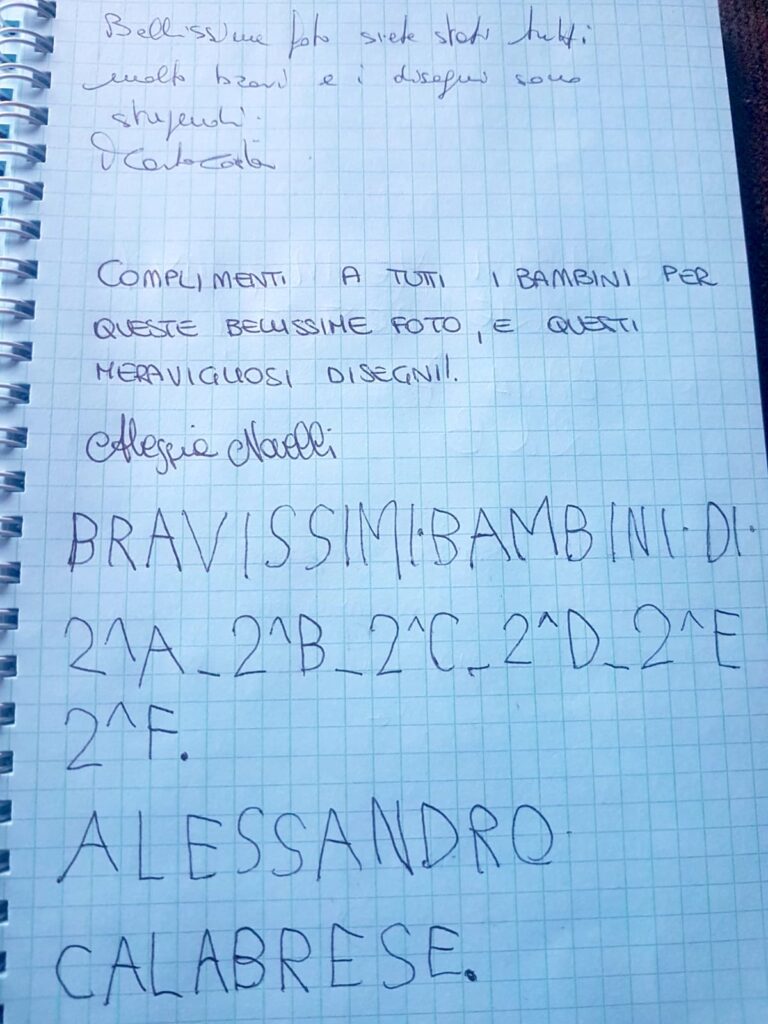 Bellissime foto siete stati tutti
molto bravi e i disegni sono
stupendi.
COMPLIMENTI A TUTTI I BAMBINI PER
QUESTE BELLISSIME FOTO, E QUESTI
MERAVIGLIOSI DISEGNI!.
Alessia Novelli
BRAVISSIMI.BAMBINI.DI.
2^A_2^B_2^C_2^D_2^E
2^F.
ALESSANDRO
CALABRESE.